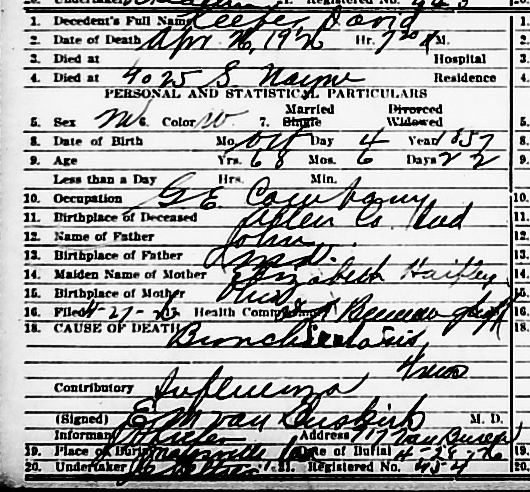 1. Decedent's Full Name Keefer David
2. Date of Death Apr 26, 1926 Hr. 7 30 M.
3. Died at Hospital
4. Died at 4025 S. Wayne Residence
PERSONAL AND STATISTICAL PARTICULARS
5. Sex M 6. Color W 7. Married Single Divorced Widowed
8. Date of Birth Mo. Oct Day 4 Year 1857
9. Age Yrs. 68 Mos. 6 Days 22
Less than a Day Hrs. Min.
10. Occupation G.E. Company
11. Birthplace of Deceased Allen Co. Ind
12. Name of Father John
13. Birthplace of Father Ind.
14. Maiden Name of Mother Elizabeth Haifley
15. Birthplace of Mother
16. Filed 4-27-26 17. Health Com
18. CAUSE OF DEATH
4 mos
Contributory Influenza
(Signed) E M Van Buskirk M. D.
Informant Address 717 Van Buren
19. Place of Burial Date of Burial 4-28-26
20. Undertaker 21. Registered No. 454